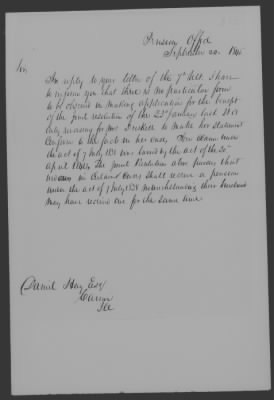 Pension Office
September 20. 1845
Sir,
In reply to your letter of the 7th Inst. I have
to inform you that there is no particular form
to be observed in making application for the benefit
of the joint resolution of the 23d January last. It is
only necessary for Mrs to make her statement
conform to the facts in her case. Her claim under
the act of 7 July 1838 was barred by the act of the 30th
April The Joint Resolution also provides that
widows in certain cases shall receive a pension
under the act of 7 July 1838 notwithstanding their husbands
may have received one for the same time
Daniel Hay Esq
Carmi
Ill